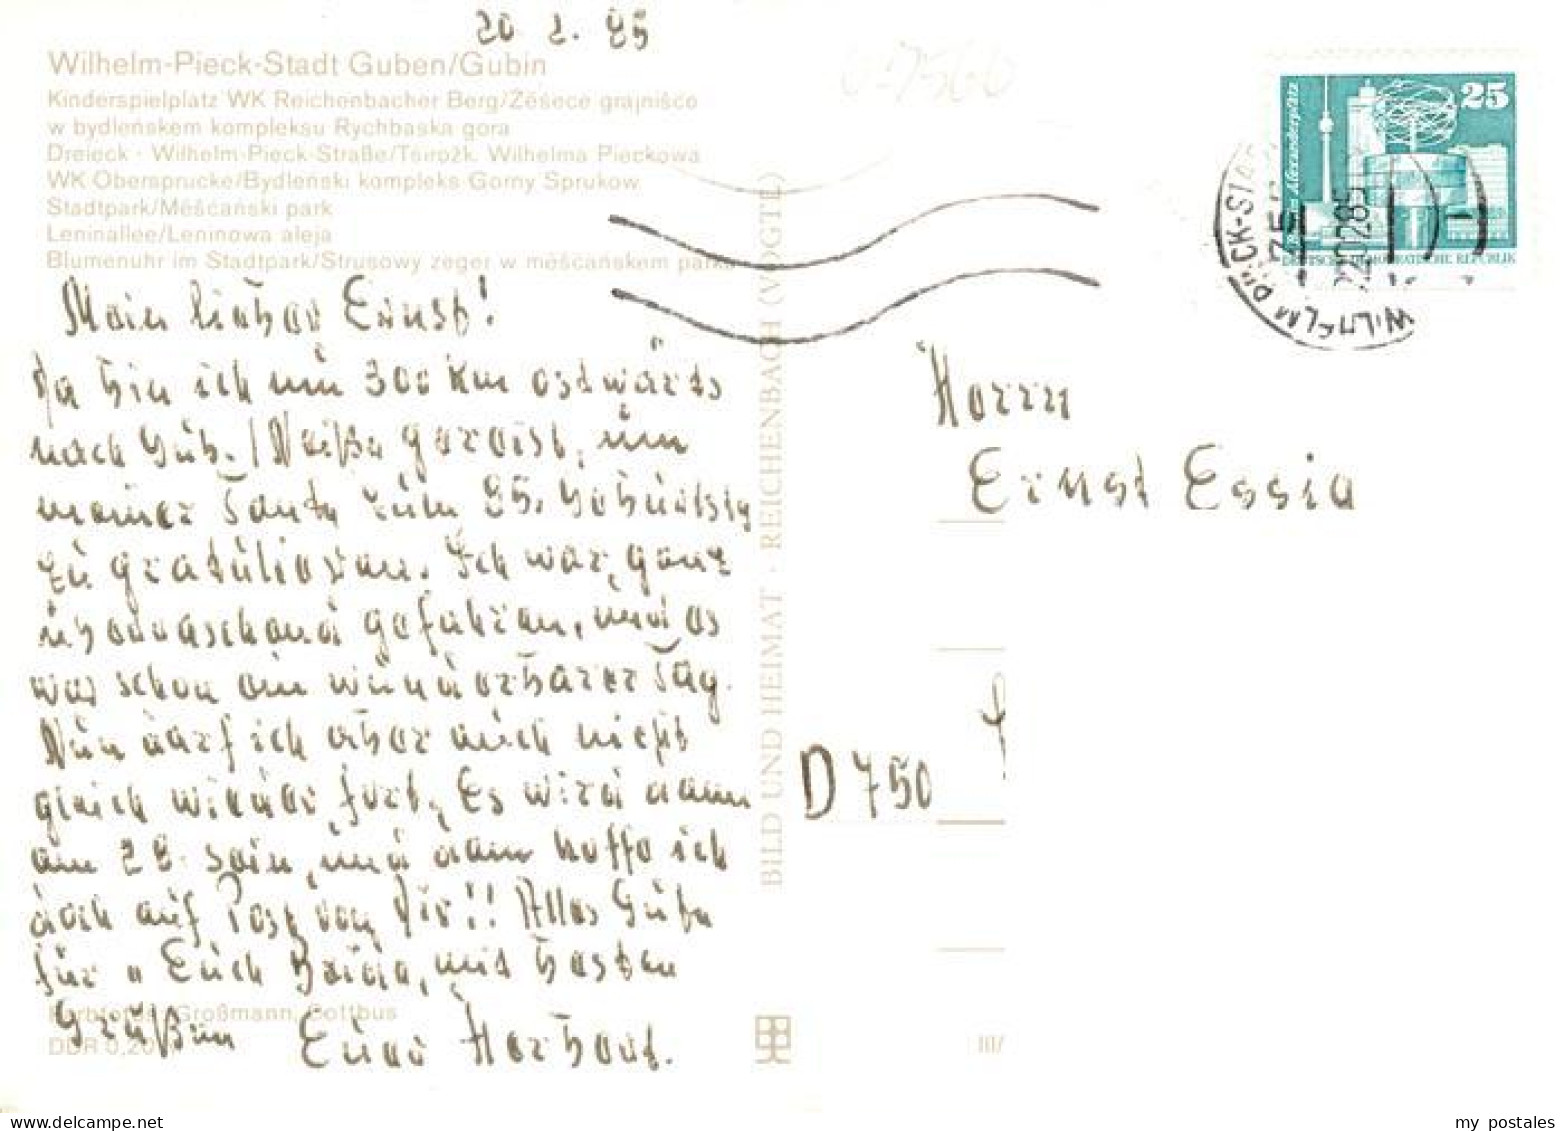 20 2. 85
Wilhelm-Pieck-Stadt Guben/Gubin
Kinderspielplatz WK Reichenbacher Berg/Zěšece grajnišćo
w bydleńskem kompleksu Rychbaska gora
Dreieck · Wilhelm-Pieck-Straße/Tsirožk. Wilhelma Pieckowa
WK Obersprucke/Bydleński kompleks Gorny Sprukow
Stadtpark/Měšćański park
Leninallee/Leninowa aleja
Blumenuhr im Stadtpark/Strusowy zeger w měšćańskem parku
Mein lieber Ernst!
Da bin ich nun 300 km ostwärts
nach Gub./Neiße gereist, um
meiner Tante zum 85. Geburtstg
zu gratulieren. Ich war, ganz
überraschend gefahren, und es
war schon ein wunderbarer Tag.
Nun darf ich aber auch nicht
gleich wieder fort, Es wird dann
am 28. sein, und dann hoffe ich
doch auf Post von Dir!! Alles Gute
für Euch Beide, mit besten
Grüßen Euer Herbert.
Farbfotos: Großmann, Cottbus
DDR 0,20 M
BILD UND HEIMAT · REICHENBACH (VOGTL)
25
Berlin Alexanderplatz
DEUTSCHE DEMOKRATISCHE REPUBLIK
WILHELM-PIECK-STADT
22.02.85
Herrn
Ernst Essig
D 750
III/
my postales